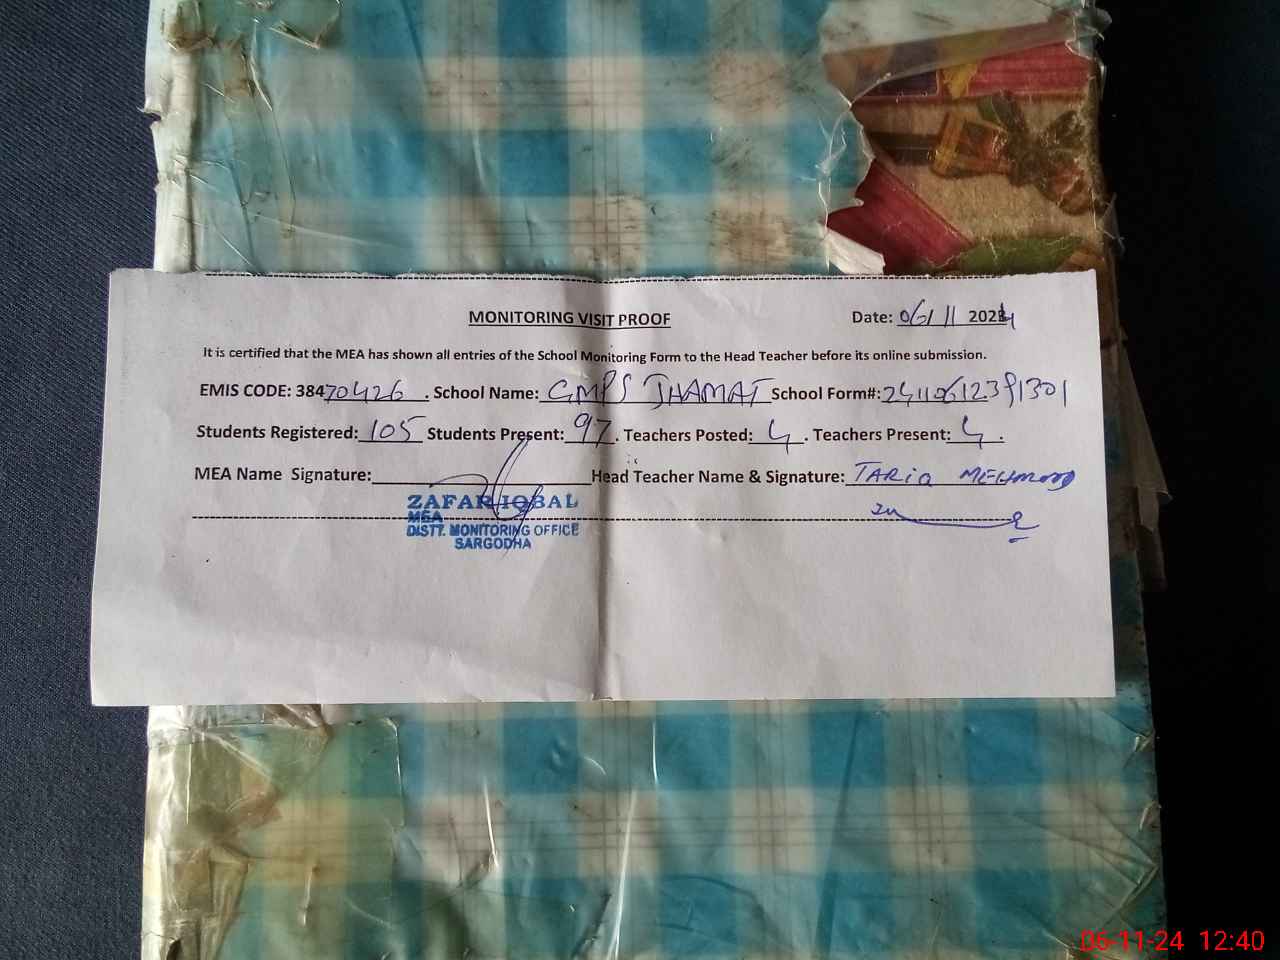 MONITORING VISIT PROOF
Date: 06/11 2024
It is certified that the MEA has shown all entries of the School Monitoring Form to the Head Teacher before its online submission.
EMIS CODE: 38470426. School Name: GMPS JHAMAT School Form#:
Students Registered: 105 Students Present: 97. Teachers Posted: 4. Teachers Present: 4.
MEA Name Signature: Head Teacher Name & Signature: TARiQ MEHMOOD
ZAFAR IQBAL
MEA
DISTT. MONITORING OFFICE
SARGODHA
06-11-24 12:40